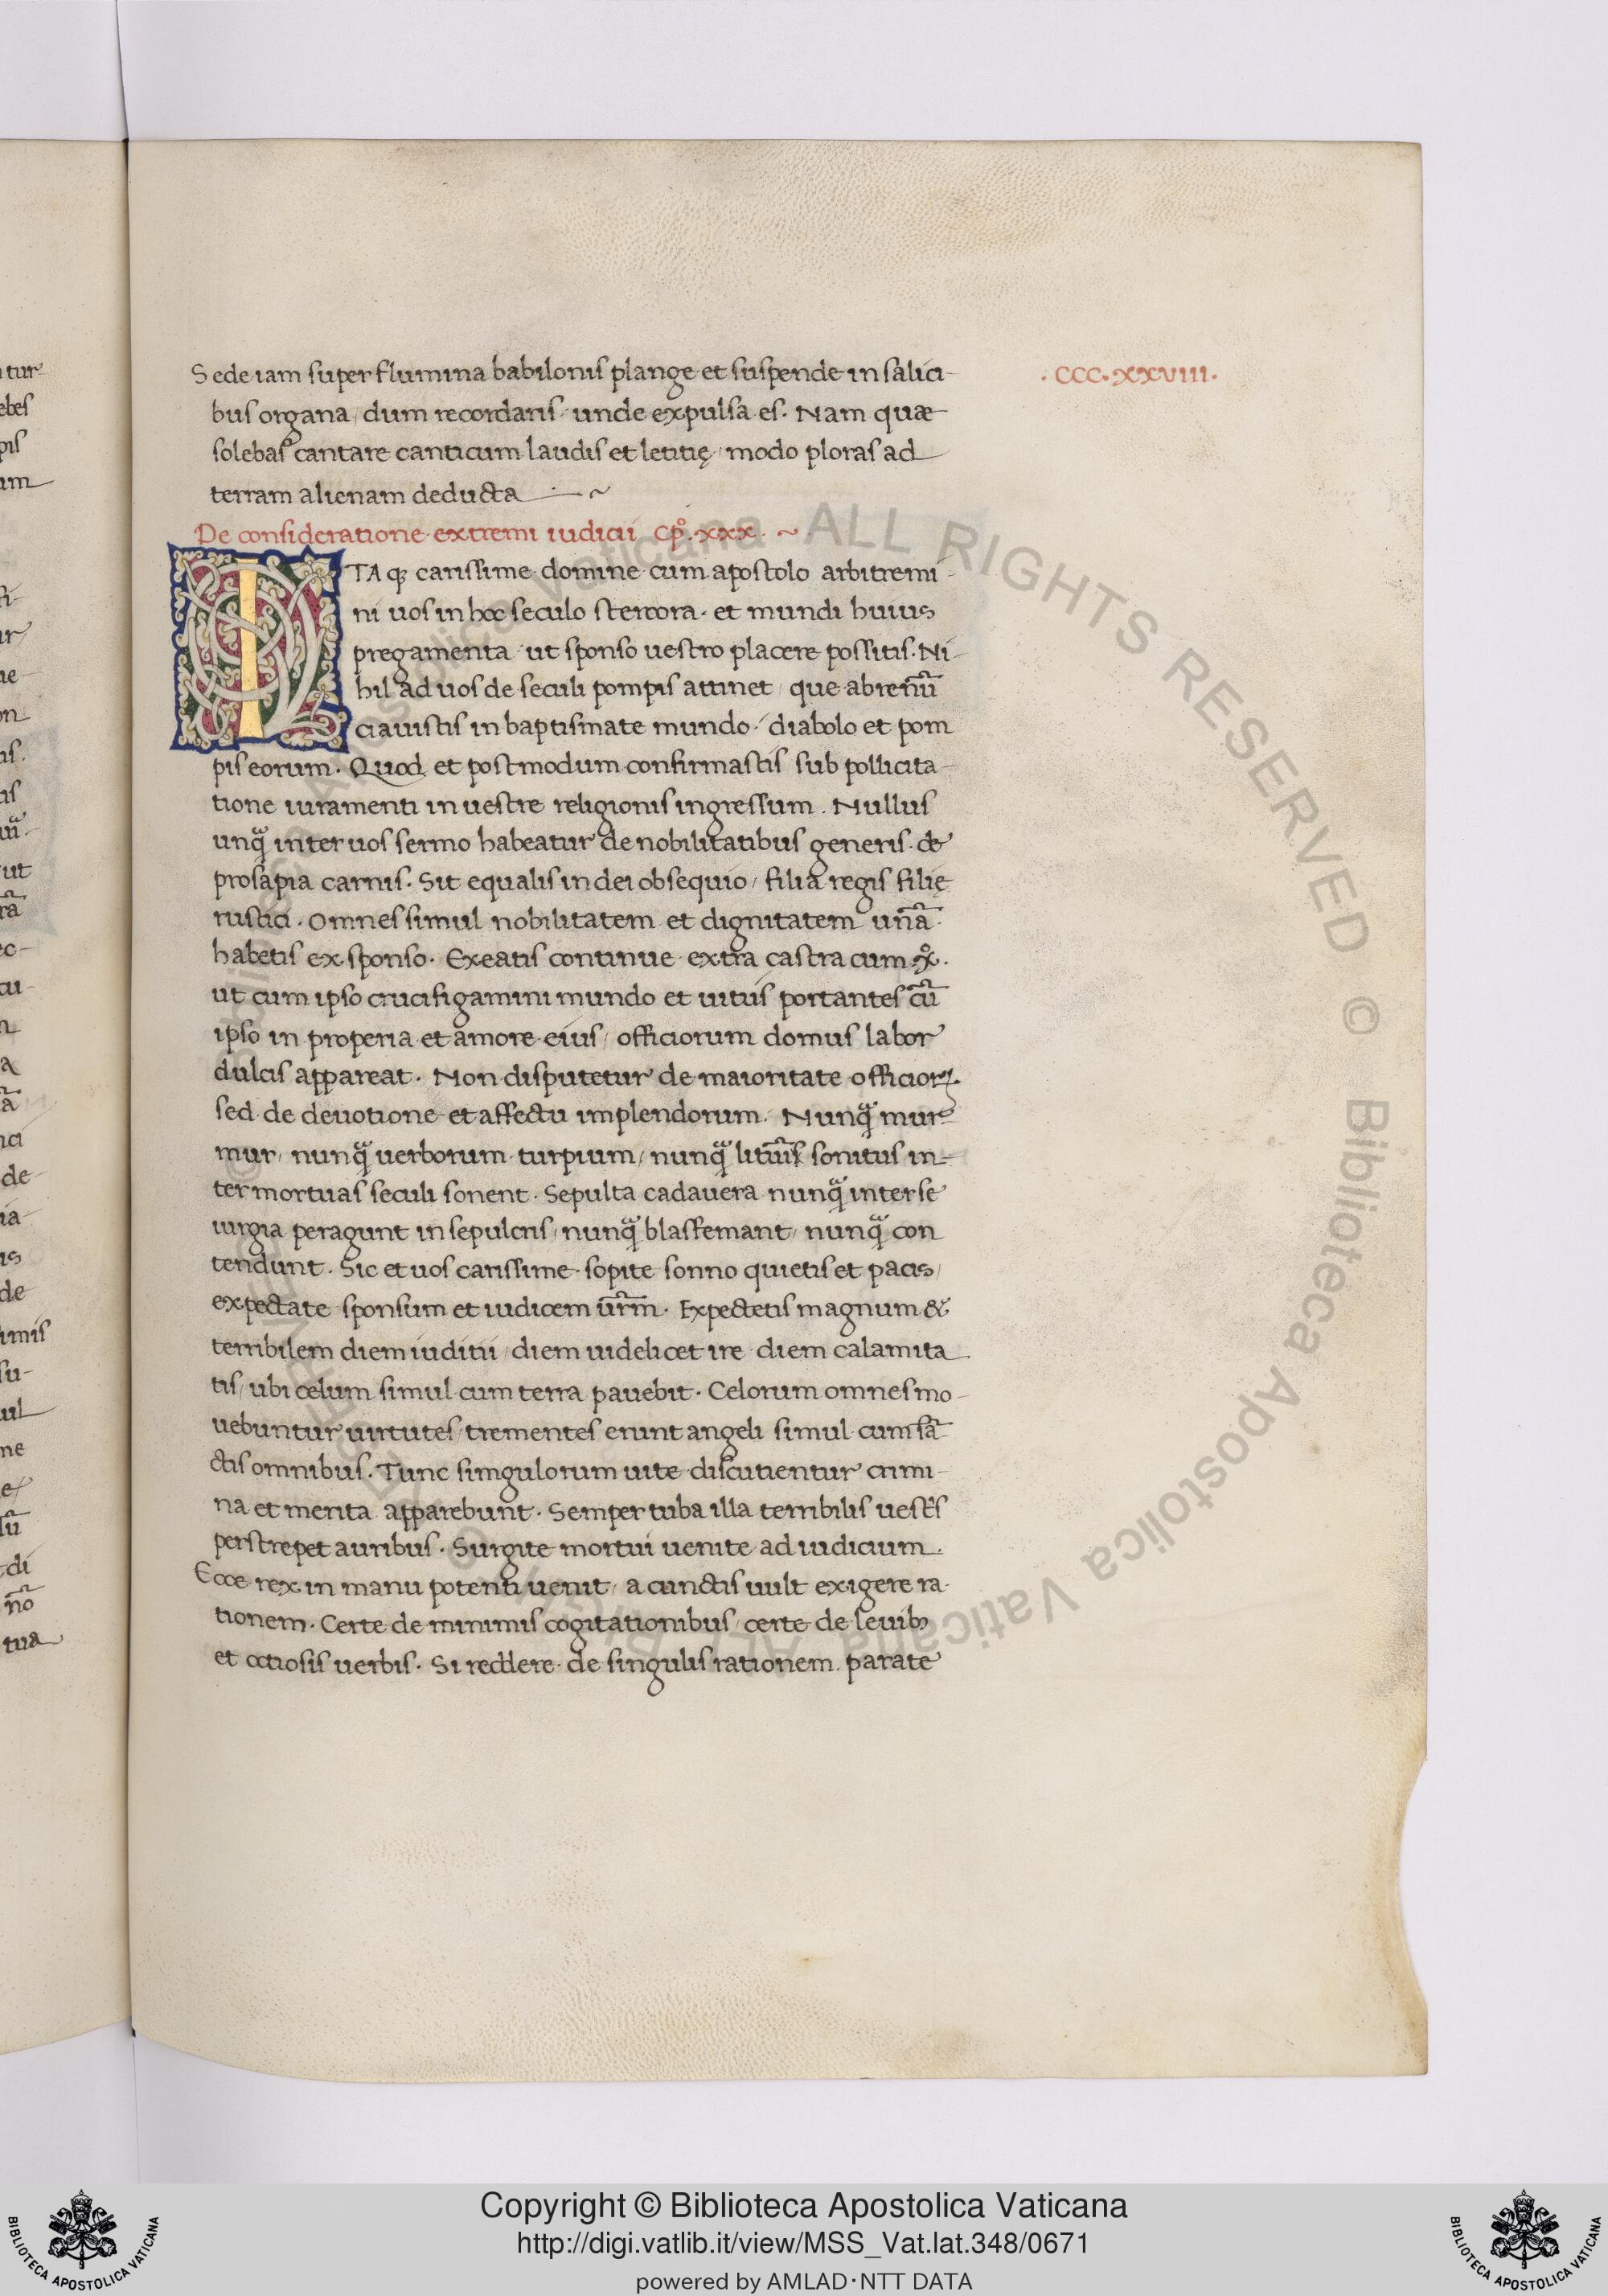 Sede iam super flumina babilonis plange et suspende in salici-
bus organa, dum recordaris unde expulsa es. Nam quæ
solebas cantare canticum laudis et letitię, modo ploras ad
terram alienam deducta ~
De consideratione extremi iudicii cp̊. xxx. ~
.CCC.XXVIII.
ITA qꝫ carissime domine cum apostolo arbitremi-
ni uos in hoc seculo stercora. et mundi huius
pregamenta ut sponso uestro placere possitis. Ni-
hil ad uos de seculi pompis attinet, que abrenū
ciauistis in baptismate mundo, diabolo et pom
pis eorum. Quod et postmodum confirmastis sub pollicita-
tione iuramenti in uestre religionis ingressum. Nullus
unq̃ inter uos sermo habeatur de nobilitatibus generis. de
prosapia carnis. Sit equalis in dei obsequio, filia regis filię
rustici. Omnes simul nobilitatem et dignitatem unā
habetis ex sponso. Exeatis continue extra castra cum xp̊.
ut cum ipso crucifigamini mundo et uitiis portantes cū
ipso in properia et amore eius, officiorum domus labor
dulcis appareat. Non disputetur de maioritate officioꝝ.
sed de deuotione et affectu implendorum. Nunq̃ mur-
mur, nunq̃ uerborum turpium, nunq̃ sonitus in-
ter mortuas seculi sonent. Sepulta cadauera nunq̃ inter se
iurgia peragunt in sepulcris, nunq̃ blasfemant, nunq̃ con
tendunt. Sic et uos carissime sopite sonno quietis et pacis,
expectate sponsum et iudicem ūrm̄. Expectetis magnum &
terribilem diem iuditii, diem uidelicet ire diem calamita
tis, ubi celum simul cum terra pauebit. Celorum omnes mo-
uebuntur uirtutes, trementes erunt angeli simul cum sā
ctis omnibus. Tunc simgulorum uite discutientur crimi-
na et merita apparebunt. Semper tuba illa terribilis uest̄s
perstrepet auribus. Surgite mortui uenite ad iudicium.
Ecce rex in manu potenti uenit, a cunctis uult exigere ra-
tionem. Certe de minimis cogitationibus, certe de leuibꝫ
et octiosis uerbis. Si reddere de singulis rationem parate
ALL RIGHTS RESERVED © Biblioteca Apostolica Vaticana
Copyright © Biblioteca Apostolica Vaticana
http://digi.vatlib.it/view/MSS_Vat.lat.348/0671
powered by AMLAD·NTT DATA
BIBLIOTECA APOSTOLICA VATICANA
BIBLIOTECA APOSTOLICA VATICANA